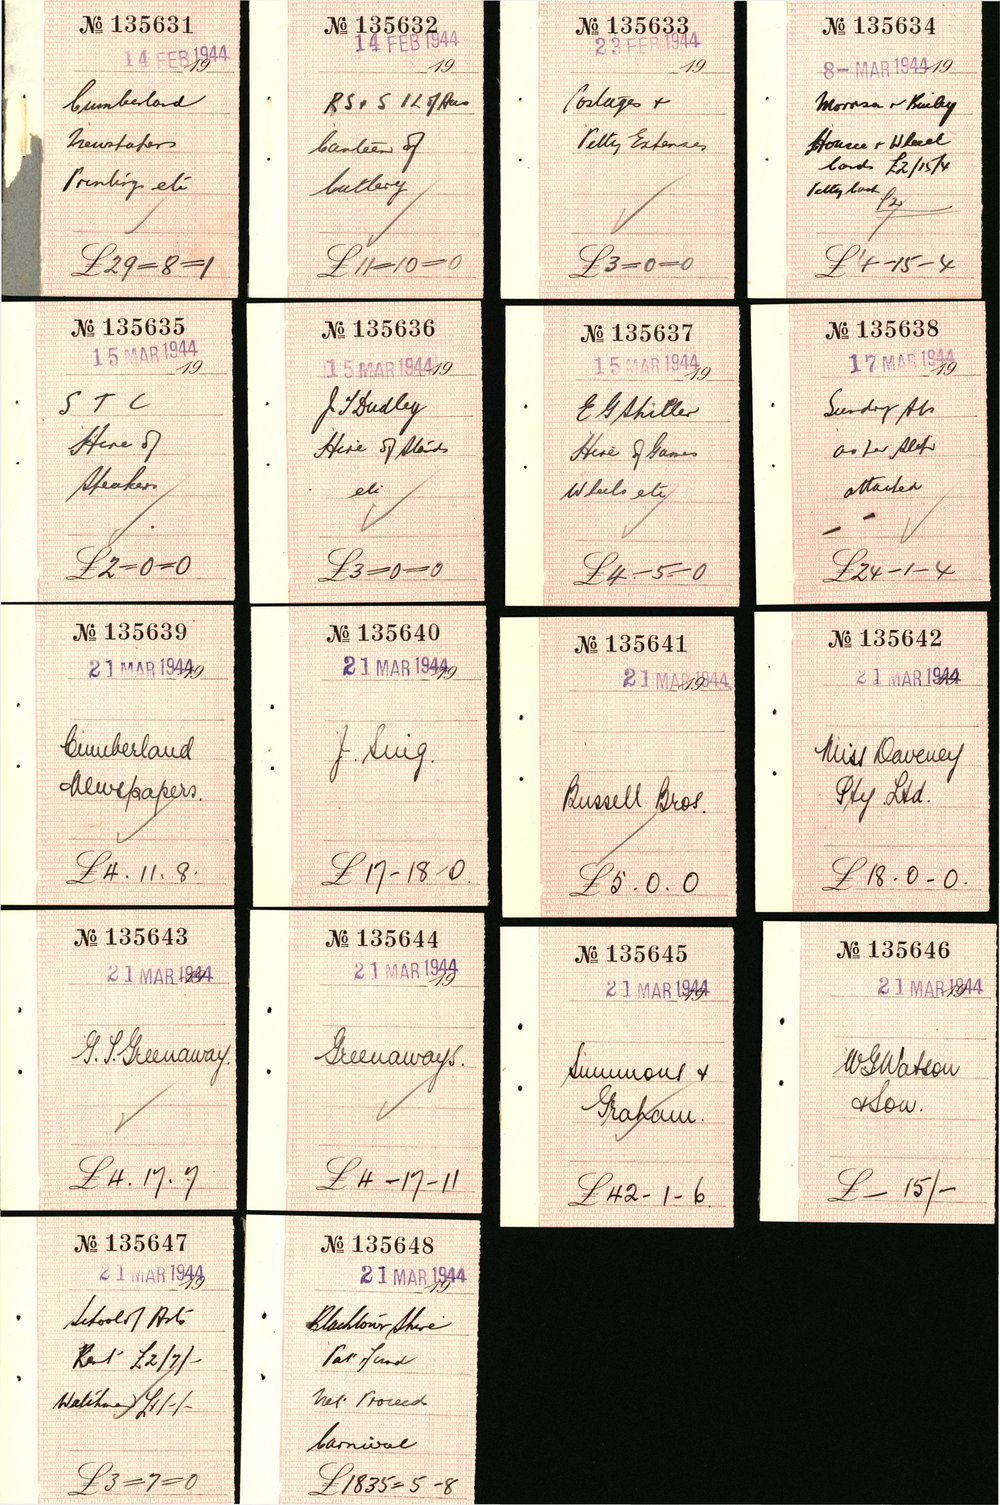 № 135631
14 FEB 1944
19
Cumberland
Newspapers
Printing etc
£29=8=1
№ 135632
14 FEB 1944
19
RS & S I L of Aus
Canteen of
Cutlery
£11=10=0
№ 135633
23 FEB 1944
19
Postages &
Petty Expenses
£3=0=0
№ 135634
8- MAR 1944
19
Morrison &
Housie & Wheel
Cards £2/15/4
Petty Cash
£2
£4-15-4
№ 135635
15 MAR 1944
19
S T C
Hire of
Speakers
£2=0=0
№ 135636
15 MAR 1944
19
J S Dudley
Hire of Stands
etc
£3=0=0
№ 135637
15 MAR 1944
19
E G Shitler
Hire of Games
Wheels etc
£4-5-0
№ 135638
17 MAR 1944
19
Sundry A/cs
as per
attached
£24-1-4
№ 135639
21 MAR 1944
19
Cumberland
Newspapers.
£4.11.8.
№ 135640
21 MAR 1944
19
J. Sing.
£17-18-0.
№ 135641
21 MAR 1944
19
Bussell Bros.
£5.0.0
№ 135642
21 MAR 1944
19
Miss Daveney
Pty Ltd.
£18-0-0.
№ 135643
21 MAR 1944
19
G. S. Greenaway.
£4.17.7
№ 135644
21 MAR 1944
19
Greenaways.
£4-17-11
№ 135645
21 MAR 1944
19
Simmons &
Graham.
£42-1-6.
№ 135646
21 MAR 1944
19
W G Watson
& Son.
£- 15/-
№ 135647
21 MAR 1944
19
School of Arts
Rent £2/7/-
Watchman £1/-/-
£3=7=0
№ 135648
21 MAR 1944
19
Blacktown Shire
Pat Fund
Net Proceed
Carnival
£1835=5-8